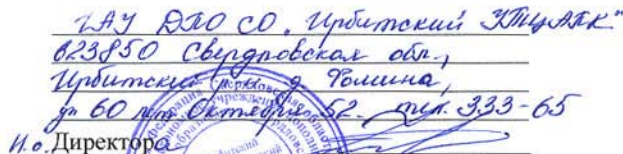 ГАУ ДПО СО "Ирбитский УТЦ АПК"
623850 Свердловская обл.,
Ирбитский р-н д. Фомина,
ул 60 лет Октября 52. тел. 333-65
И.о. Директора